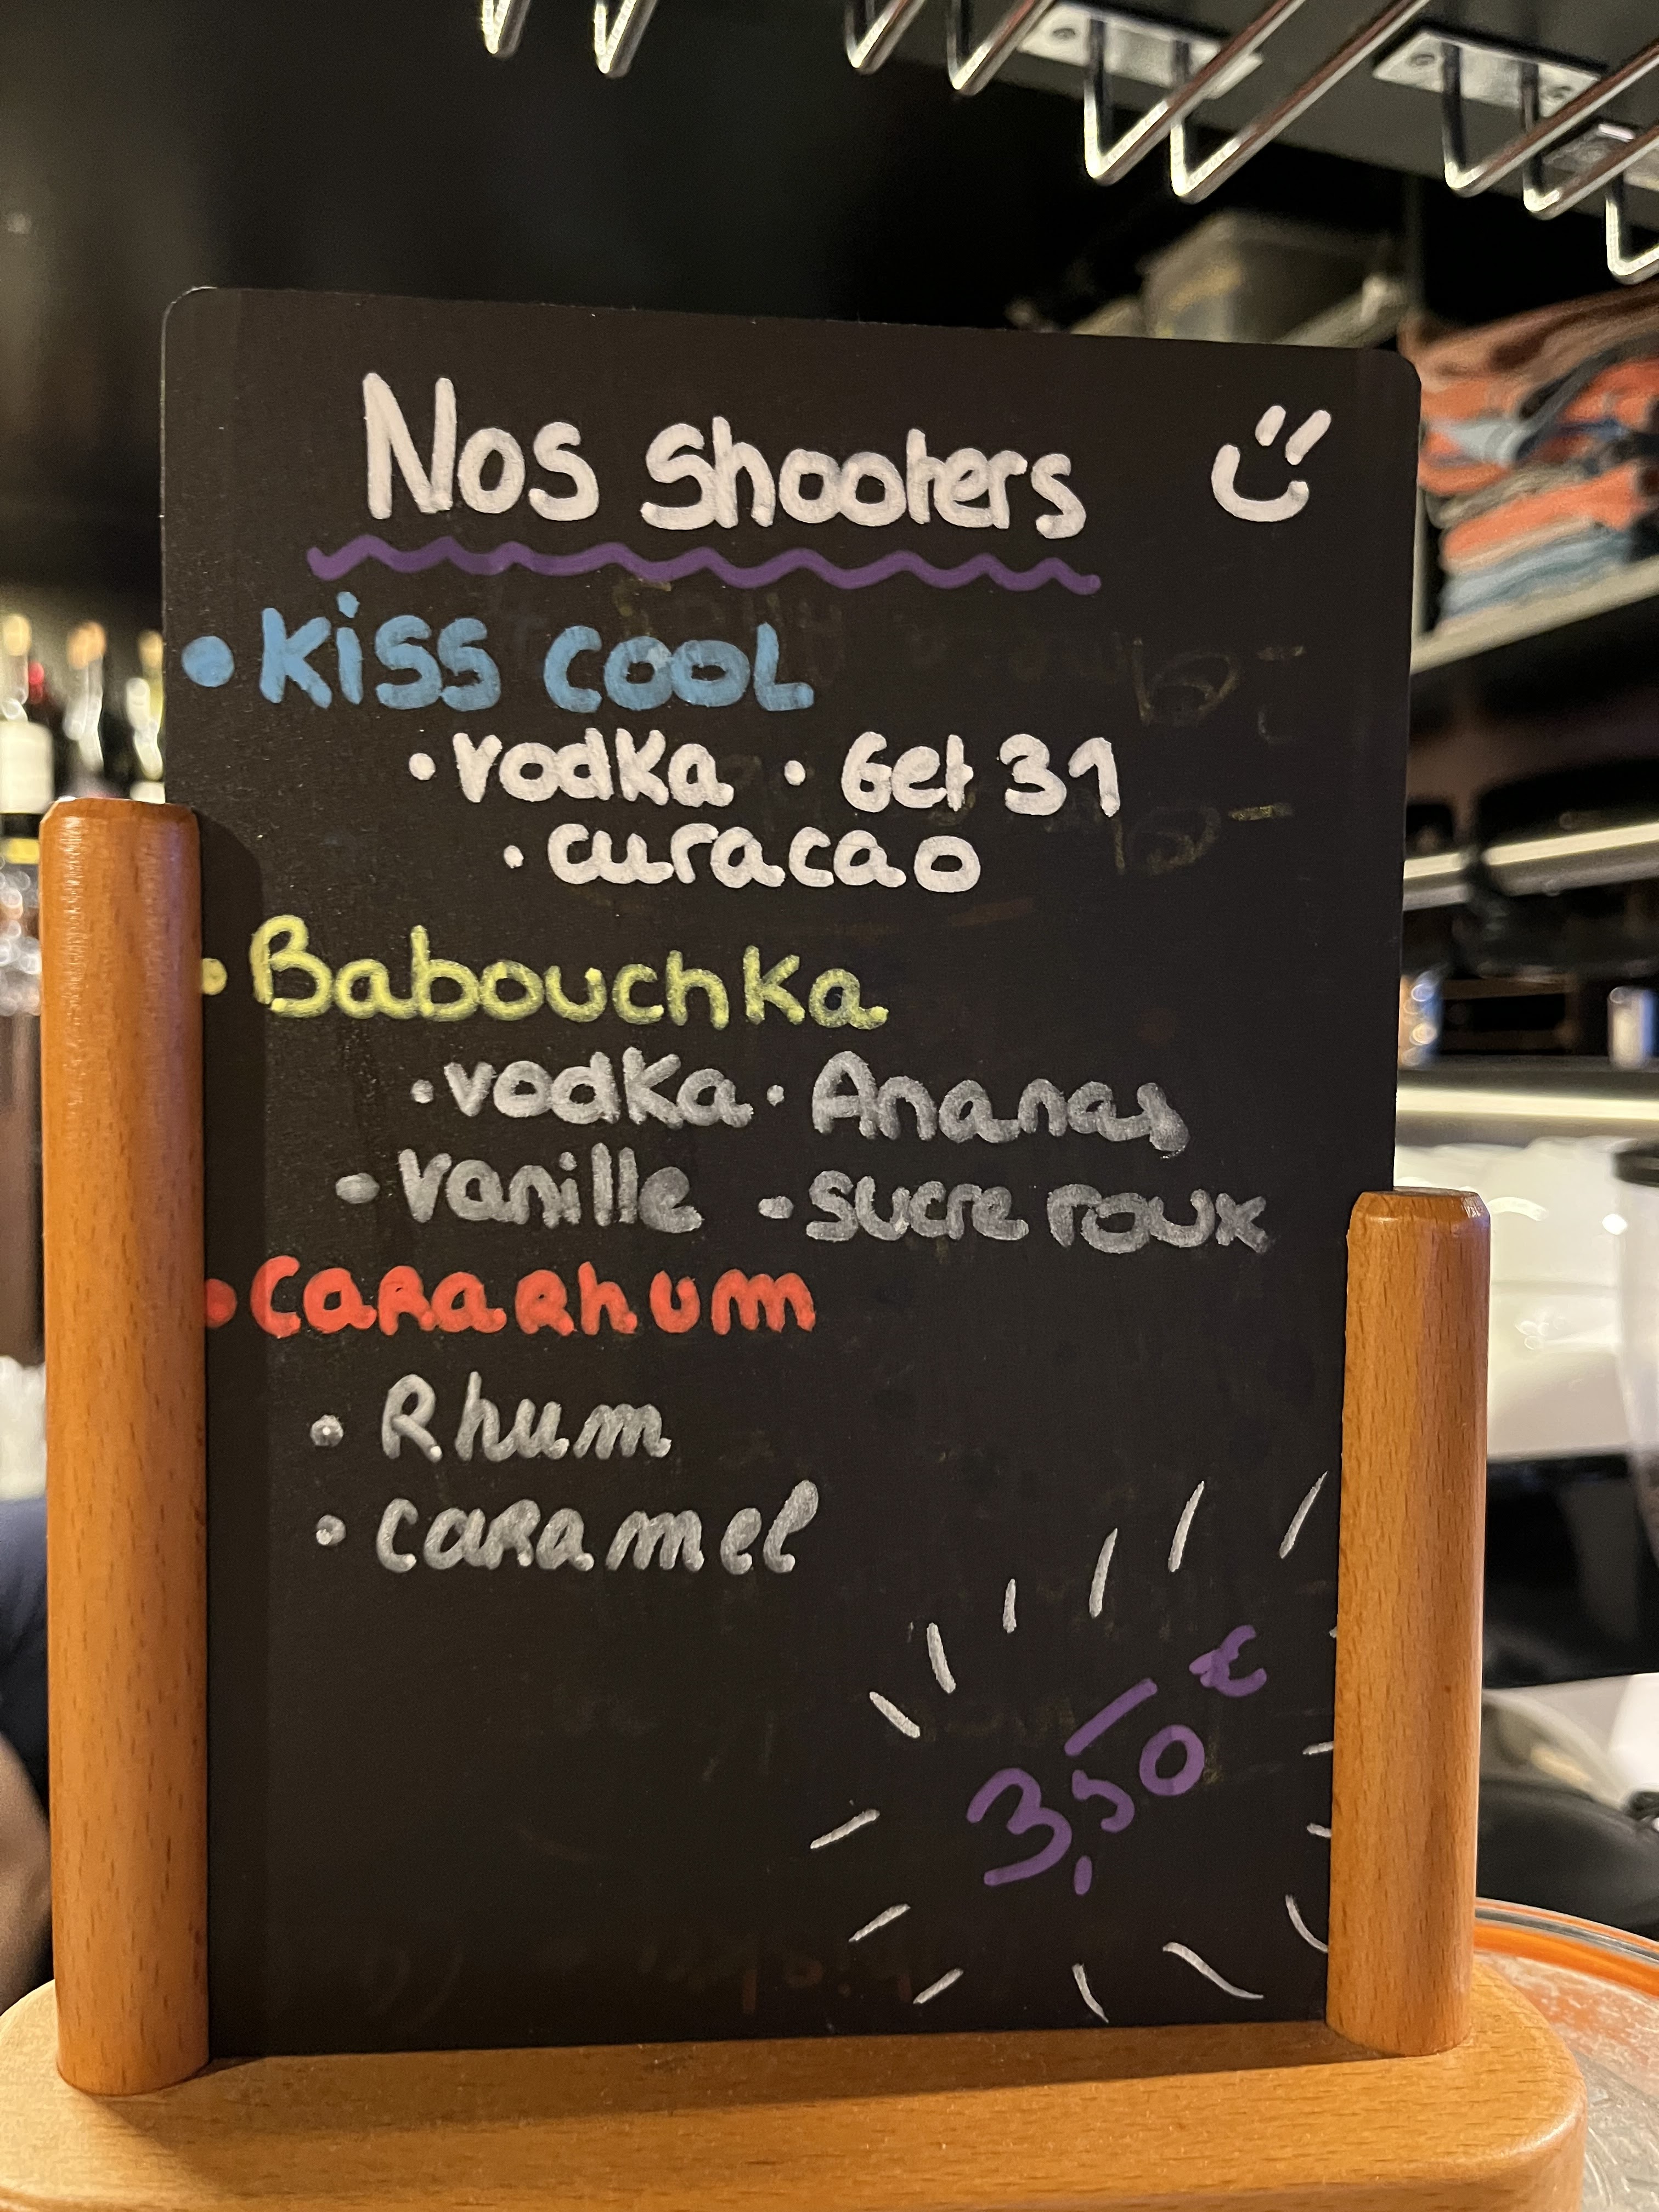 Nos shooters
• Kiss cool
• vodka • Get 31
• curacao
• Babouchka
• vodka • Ananas
• vanille • sucre roux
• CaRaRhum
• Rhum
• caRamel
3,50€